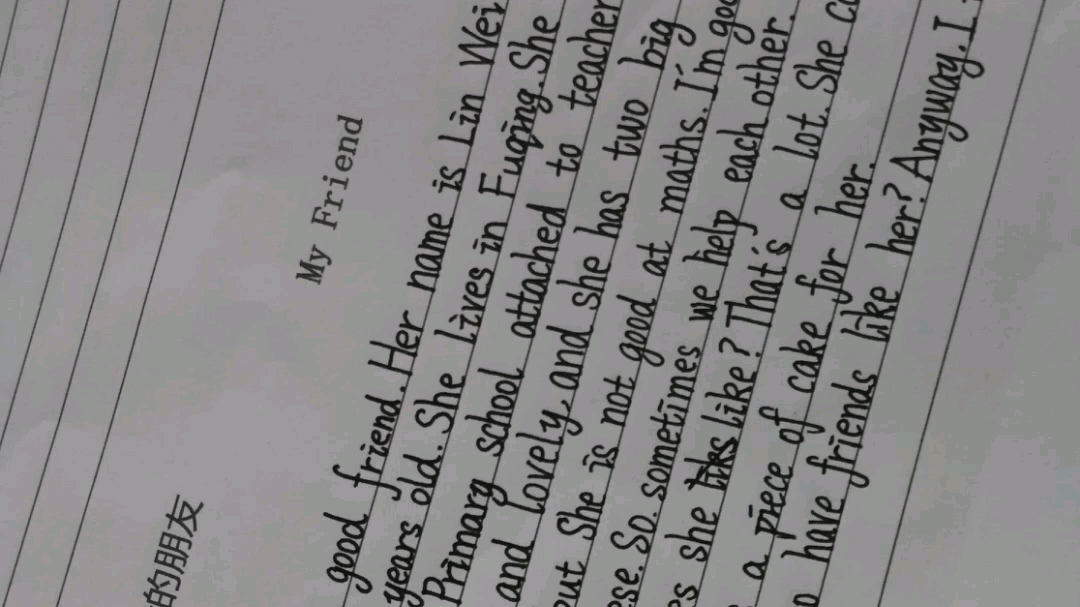 的朋友
My Friend
good friend. Her name is Lin Wei
years old. She lives in Fuqing. She
Primary school attached to teacher
and lovely, and she has two big
but She is not good at maths. I'm
So. sometimes we help each other.
she like? That's a lot. She
a piece of cake for her.
have friends like her? Anyway. I